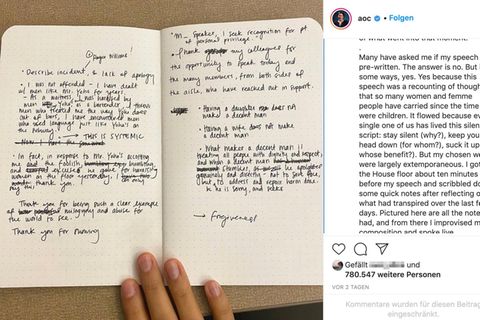 @Roger Williams!
- Describe incident, & lack of apology
I was not offended - I have dealt
w/ men like Mr. Yoho for years.
As a waitress, I was harassed by
men like Yoho. As a bartender, I threw
men who treated me the way Yoho does
out of bars, I have encountered men
who used language just like Yoho's on
the subway. → THIS IS SYSTEMIC
- In fact, in response to Mr. Yoho's accosting
me and the foolish,
and excused he gave for
women on the floor yesterday, I
thank you.
Thank you for being such a clear example
of misogyny and abuse for
the world to see.
Thank you for showing
• M— Speaker, I seek recognition for pt
of personal privilege.
• Thank my colleagues for
the opportunity to speak today and
the many members, from both sides of
the aisle, who have reached out in support.
- Having a daughter does not
make a decent man
- Having a wife does not make
a decent man
- What makes a decent man is
treating all people with dignity and respect,
and when a decent man
stumbles, he apologizes
genuinely and directly - not to save face,
but to address and repair harm done.
He is sorry, and seeks
→ forgiveness
aoc
• Folgen
of what went into that moment.
Many have asked me if my speech
pre-written. The answer is no. But i
some ways, yes. Yes because this
speech was a recounting of though
that so many women and femme
people have carried since the time
were children. It flowed because ev
single one of us has lived this silen
script: stay silent (why?), keep you
head down (for whom?), suck it up
whose benefit?). But my chosen w
were largely extemporaneous. I go
the House floor about ten minutes
before my speech and scribbled do
some quick notes after reflecting o
what had transpired over the last fe
days. Pictured here are all the note
had, and from there I improvised m
composition and spoke live.
Gefällt und
780.547 weitere Personen
VOR 2 TAGEN
Kommentare wurden für diesen Beitrag
eingeschränkt.